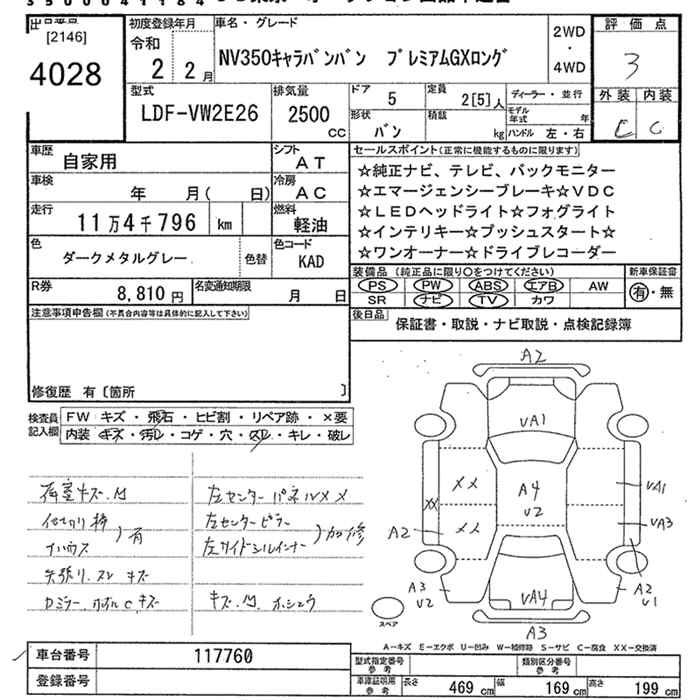 出品番号
[2146]
4028
初度登録年月
令和
2 2月
車名・グレード
NV350キャラバンバン プレミアムGXロング
2WD
・
4WD
評価点
3
外装 内装
C
型式
LDF-VW2E26
排気量
2500
CC
ドア
5
定員
2[5]人
形状
バン
積載
kg
ディーラー・並行
モデル年式 年
ハンドル 左・右
車歴
自家用
シフト
AT
車検
年 月( 日)
冷房
AC
走行
11万4千796 km
燃料
軽油
色
ダークメタルグレー
色替
色コード
KAD
R券
8,810円
名変通知期限
月 日
セールスポイント(正常に機能するものに限ります)
☆純正ナビ、テレビ、バックモニター
☆エマージェンシーブレーキ☆VDC
☆LEDヘッドライト☆フォグライト
☆インテリキー☆プッシュスタート☆
☆ワンオーナー☆ドライブレコーダー
装備品 (純正品に限り○をつけてください)
PS PW ABS エアB AW
SR ナビ TV カワ
新車保証書
有・無
後日品
保証書・取説・ナビ取説・点検記録簿
注意事項申告欄(不具合内容等は具体的に記入して下さい)
修復歴 有〔箇所 〕
検査員記入欄
FW キズ・飛石・ヒビ割・リペア跡・×要
内装 キズ・汚レ・コゲ・穴・スレ・キレ・破レ
荷室キズ.凹
有
左センターパネルXX
左センターピラー
左サイドシルインナー
加修
キズ.凹.
A2
VA1
XX
A4
V2
XX
XX
VA1
VA3
A2
A3
V2
A2
V1
VA4
A3
スペア
A-キズ E-エクボ U-凹み W-補修跡 S-サビ C-腐食 XX-交換済
車台番号
117760
登録番号
型式指定番号
参考
類別区分番号
参考
車庫証明用
参考
長さ 469cm 幅 169cm 高さ 199cm